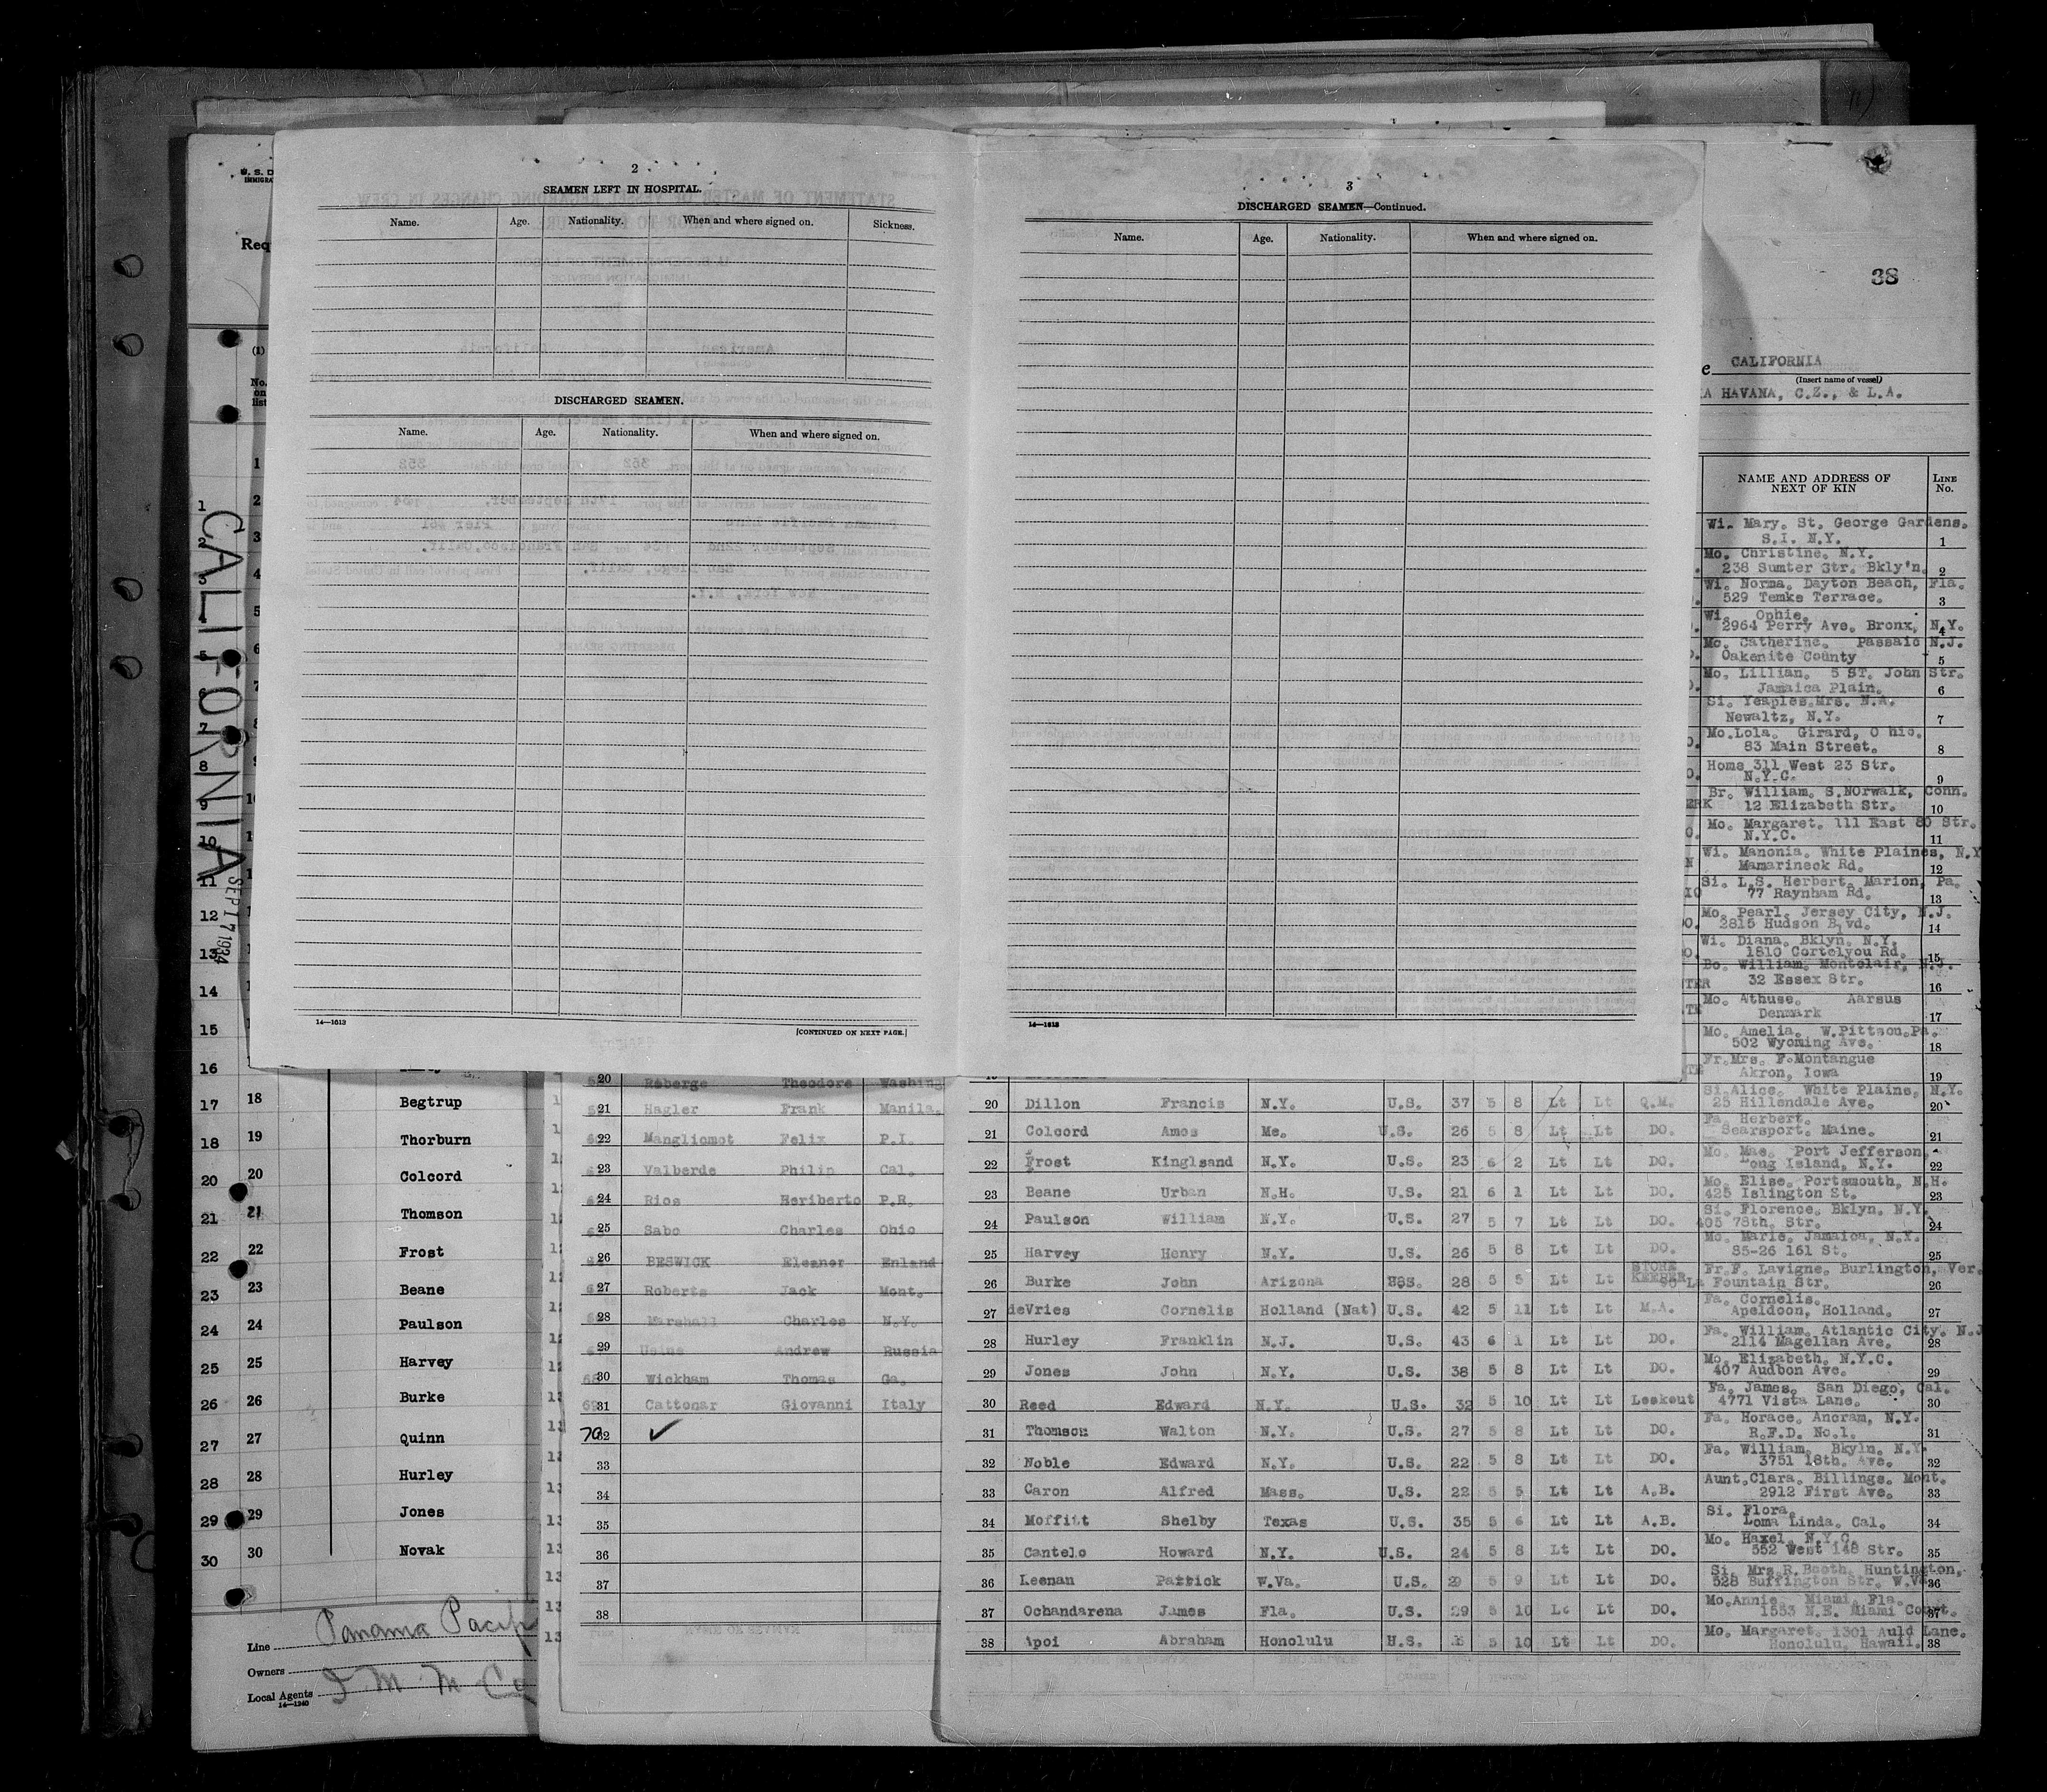 2
SEAMEN LEFT IN HOSPITAL.
Name. Age. Nationality. When and where signed on. Sickness.
DISCHARGED SEAMEN.
Name. Age. Nationality. When and where signed on.
14—1613
[CONTINUED ON NEXT PAGE.]
3
DISCHARGED SEAMEN—Continued.
Name. Age. Nationality. When and where signed on.
14—1613
38
CALIFORNIA
(Insert name of vessel)
HAVANA, C.Z., & L.A.
NAME AND ADDRESS OF NEXT OF KIN LINE No.
Wi. Mary. St. George Gardens.
S.I. N.Y. 1
Mo. Christine. N.Y.
238 Sumter Str. Bkly'n. 2
Wi. Norma. Dayton Beach, Fla.
529 Temke Terrace. 3
Wi. Ophie.
2964 Perry Ave. Bronx, N.Y. 4
Mo. Catherine. Passaic N.J.
Oakenite County 5
Mo. Lillian. 5 ST. John Str.
Jamaica Plain. 6
Si. Yeaples.Mrs. N.A.
Newaltz, N.Y. 7
Mo.Lola. Girard, O hio.
83 Main Street. 8
Home 311 West 23 Str.
N.Y.C. 9
Br. William. S.NOrwalk, Conn.
12 Elizabeth Str. 10
Mo. Margaret. 111 East 80 Str.
N.Y.C. 11
Wi. Manonia. White Plaines, N.Y
Mamarineck Rd. 12
Si. L.S. Herbert. Marion, Pa.
77 Raynham Rd. 13
Mo. Pearl. Jersey City, N.J.
2815 Hudson Blvd. 14
Wi. Diana. Bklyn. N.Y.
1810 Cortelyou Rd. 15
Bo. William. Montclair, N.J.
32 Essex Str. 16
Mo. Athuse. Aarsus
Denmark 17
Mo. Amelia. W.Pittsou.Pa.
502 Wyoming Ave. 18
Fr.Mrs. F.Montangue
Akron, Iowa 19
Si.Alice. White Plains, N.Y.
20 Dillon Francis N.Y. U.S. 37 5 8 Lt Lt Q.M. 25 Hillendale Ave. 20
Fa. Herbert.
21 Colcord Amos Me. U.S. 26 5 8 Lt Lt DO. Searsport. Maine. 21
Mo. Mae. Port Jefferson
22 Frost Kinglsand N.Y. U.S. 23 6 2 Lt Lt DO. Long Island, N.Y. 22
Mo. Elise. Portsmouth, N.H.
23 Beane Urban N.H. U.S. 21 6 1 Lt Lt DO. 425 Islington St. 23
Si. Florence. Bklyn. N.Y.
24 Paulson William N.Y. U.S. 27 5 7 Lt Lt DO. 405 78th. Str. 24
Mo. Marie. Jamaica, N.Y.
25 Harvey Henry N.Y. U.S. 26 5 8 Lt Lt DO. 85-26 161 St. 25
Fr.F. Lavigne. Burlington, Ver.
26 Burke John Arizona U.S. 28 5 5 Lt Lt STORE KEEPER La Fountain Str. 26
Fa. Cornelis.
27 deVries Cornelis Holland (Nat) U.S. 42 5 11 Lt Lt M.A. Apeldoon, Holland. 27
Fa. William. Atlantic City. N.J
28 Hurley Franklin N.J. U.S. 43 6 1 Lt Lt DO. 2114 Magellan Ave. 28
Mo. Elizabeth. N.Y.C.
29 Jones John N.Y. U.S. 38 5 8 Lt Lt DO. 407 Audbon Ave. 29
Fa. James. San Diego, Cal.
30 Reed Edward N.Y. U.S. 32 5 10 Lt Lt Lookout 4771 Vista Lane. 30
Fa. Horace. Ancram, N.Y.
31 Thomson Walton N.Y. U.S. 27 5 8 Lt Lt DO. R.F.D. No.1. 31
Fa. William. Bkyln. N.Y.
32 Noble Edward N.Y. U.S. 22 5 8 Lt Lt DO. 3751 18th. Ave. 32
Aunt.Clara. Billings. Mont.
33 Caron Alfred Mass. U.S. 22 5 5 Lt Lt A.B. 2912 First Ave. 33
Si. Flora.
34 Moffitt Shelby Texas U.S. 35 5 6 Lt Lt A.B. Loma Linda. Cal. 34
Mo. Haxel. N.Y.C.
35 Cantelo Howard N.Y. U.S. 24 5 8 Lt Lt DO. 552 West 148 Str. 35
Si. Mrs.R.Booth. Huntington.
36 Leenan Patrick W.Va. U.S. 29 5 9 Lt Lt DO. 528 Buffington Str. W.Va 36
Mo.Annie. Miami, Fla.
37 Ochandarena James Fla. U.S. 29 5 10 Lt Lt DO. 1553 N.E. Miami Court. 37
Mo. Margaret. 1301 Auld Lane.
38 Apoi Abraham Honolulu U.S. 5 10 Lt Lt DO. Honolulu, Hawaii. 38
20 Roberge Theodore Washing
21 Hagler Frank Manila.
22 Mangliomot Felix P.I.
23 Valberde Philip Cal.
24 Rios Heriberto P.R.
25 Sabo Charles Ohio
26 BESWICK Eleanor Enland
27 Roberts Jack Mont.
28 Marshall Charles N.Y.
29 Andrew Russia
30 Wickham Thomas Ga.
31 Cattonar Giovanni Italy
70 32 ✓
33
34
35
36
37
38
U. S. D
IMMIGRA
Req
(1)
No. on list
CALIFORNIA
SEP 17 1934
1 1
2 2
3 3
4 4
5 5
6 6
7 7
8
9
10
11
12
13
14
15
16
17 18 Begtrup
18 19 Thorburn
19 20 Colcord
20 21 Thomson
21 22 Frost
22 23 Beane
23 24 Paulson
24 25 Harvey
25 26 Burke
26 27 Quinn
27 28 Hurley
28 29 Jones
29 30 Novak
30
Line Panama Pacif
Owners
Local Agents I M M Co
14—1240